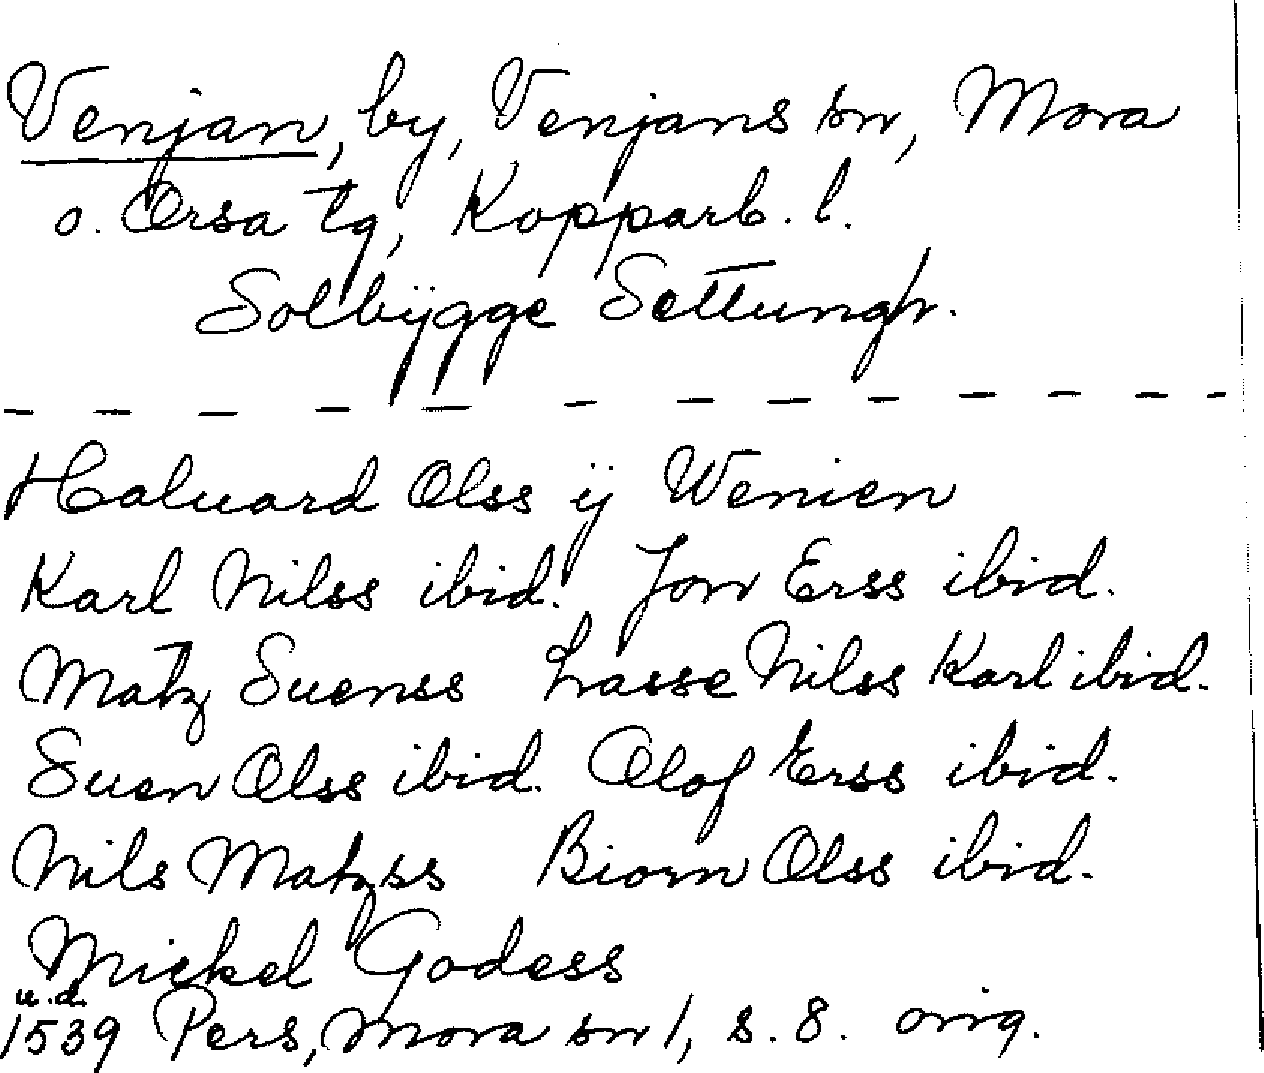 Venjan, by, Venjans sn, Mora
o. Orsa tg, Kopparb. l.
Solbÿgge Settungh.
Haluard Olss ÿ Wenien
Karl Nilss ibid. Jon Erss ibid.
Matz Suenss Lasse Nilss Karl ibid.
Suen Olss ibid. Olof Erss ibid.
Nils Matzss Biorn Olss ibid.
Mickel Godess
u.d.
1539 Pers, Mora sn 1, s. 8. orig.